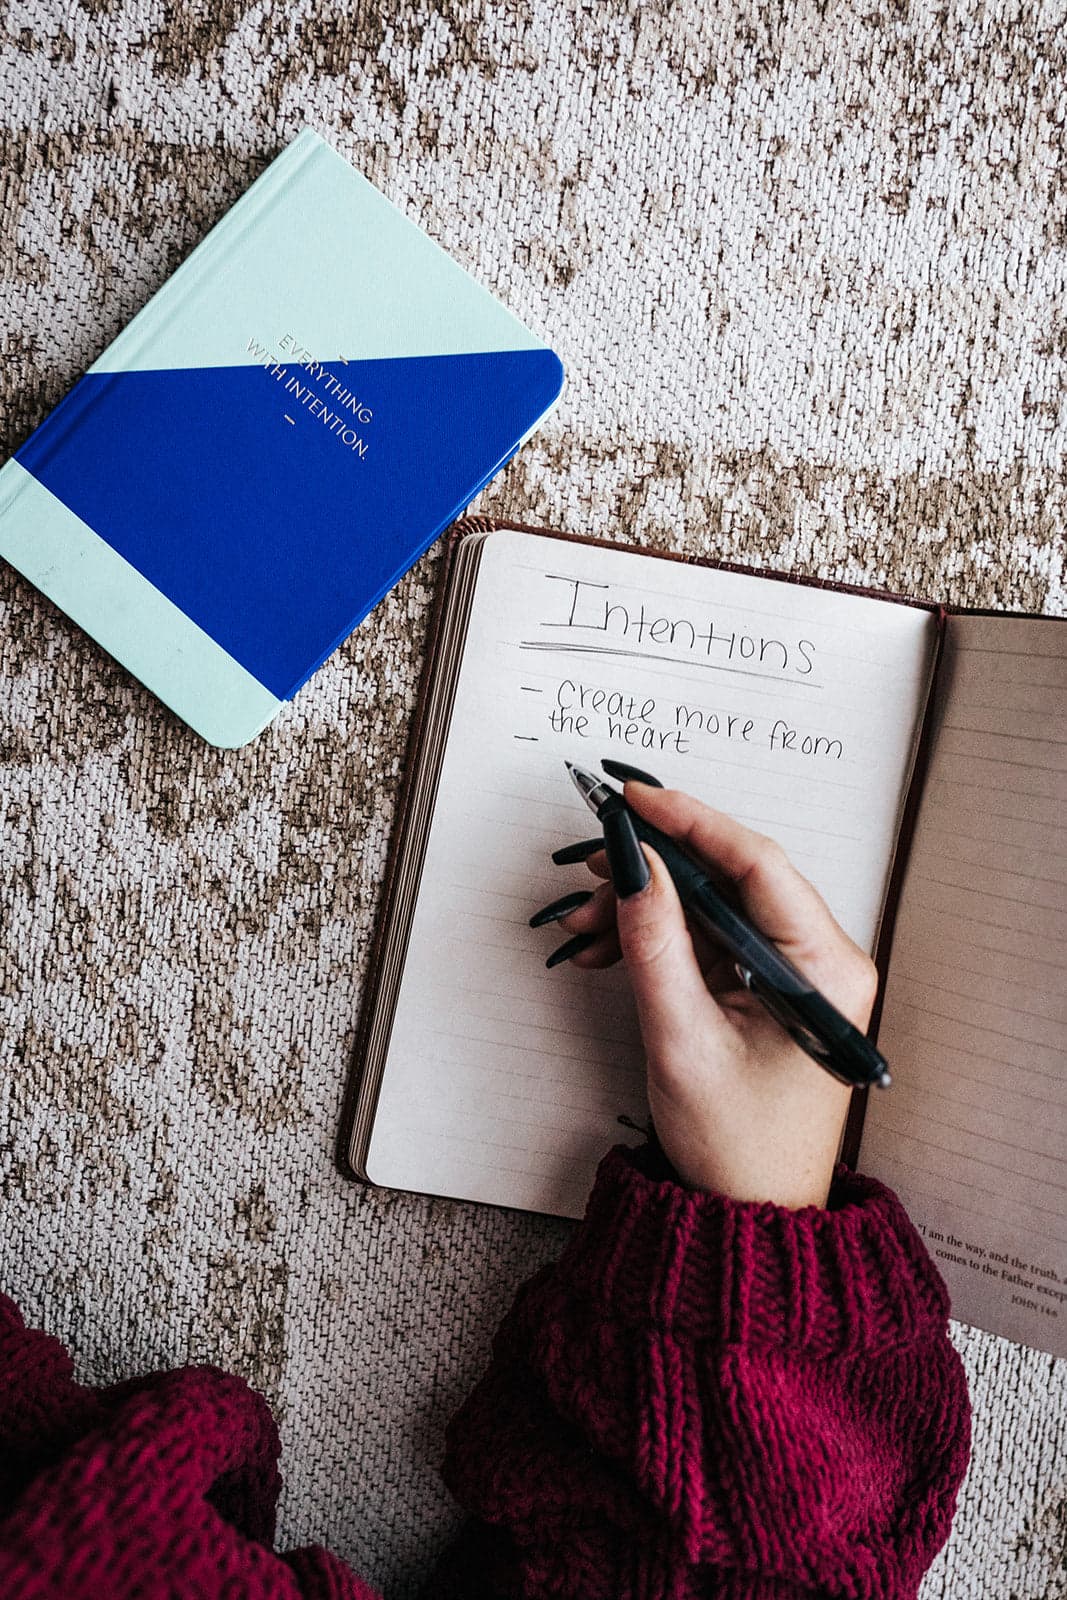 EVERYTHING
WITH INTENTION.
Intentions
- create more from
the heart
-
"I am the way, and the truth,
comes to the Father
JOHN 14:6